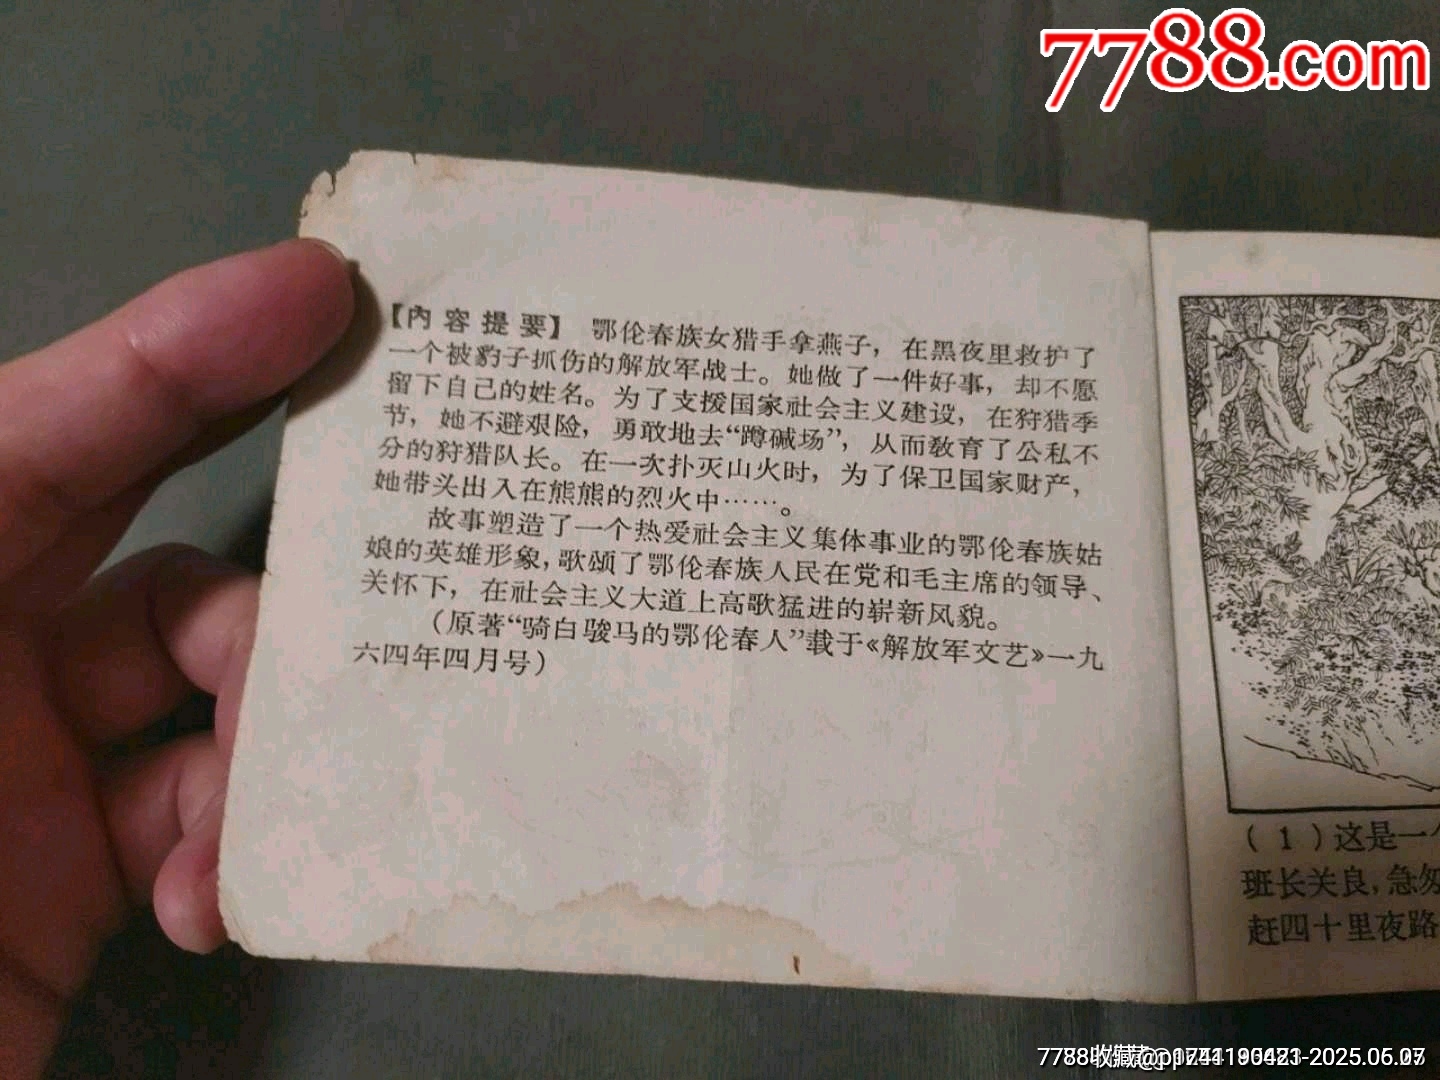 7788.com
【内容提要】 鄂伦春族女猎手拿燕子，在黑夜里救护了
一个被豹子抓伤的解放军战士。她做了一件好事，却不愿
留下自己的姓名。为了支援国家社会主义建设，在狩猎季
节，她不避艰险，勇敢地去“蹲碱场”，从而教育了公私不
分的狩猎队长。在一次扑灭山火时，为了保卫国家财产，
她带头出入在熊熊的烈火中……。
故事塑造了一个热爱社会主义集体事业的鄂伦春族姑
娘的英雄形象，歌颂了鄂伦春族人民在党和毛主席的领导、
关怀下，在社会主义大道上高歌猛进的崭新风貌。
（原著“骑白骏马的鄂伦春人”载于《解放军文艺》一九
六四年四月号）
（1）这是一个
班长关良，急匆
赶四十里夜路